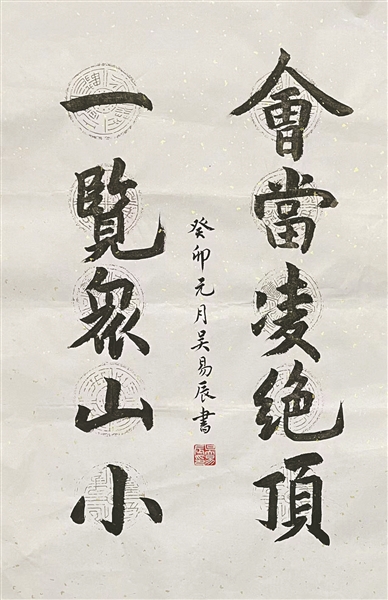 會當凌絕頂
一覽衆山小
癸卯元月吴易辰書